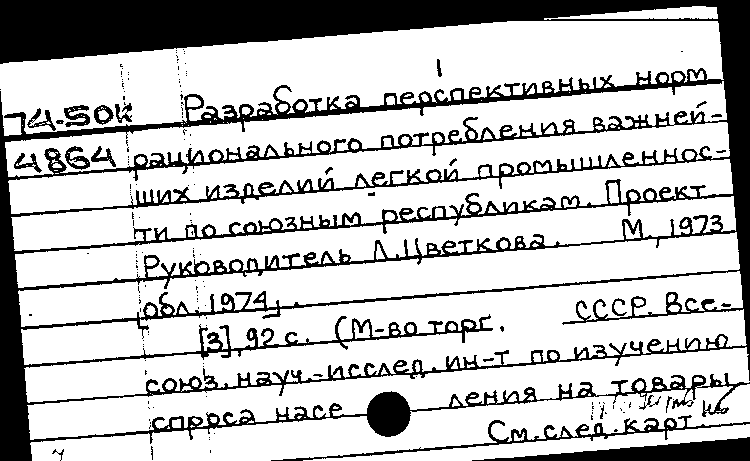 1
74-50к Разработка перспективных норм
4864 рационального потребления важней-
ших изделий легкой промышленнос-
ти по союзным республикам. Проект.
Руководитель Л. Цветкова. М., 1973
[обл. 1974].
[3], 92 с. (М-во торг. СССР. Все-
союз. науч.-исслед. ин-т по изучению
спроса насе ления на товары
См. след. карт.